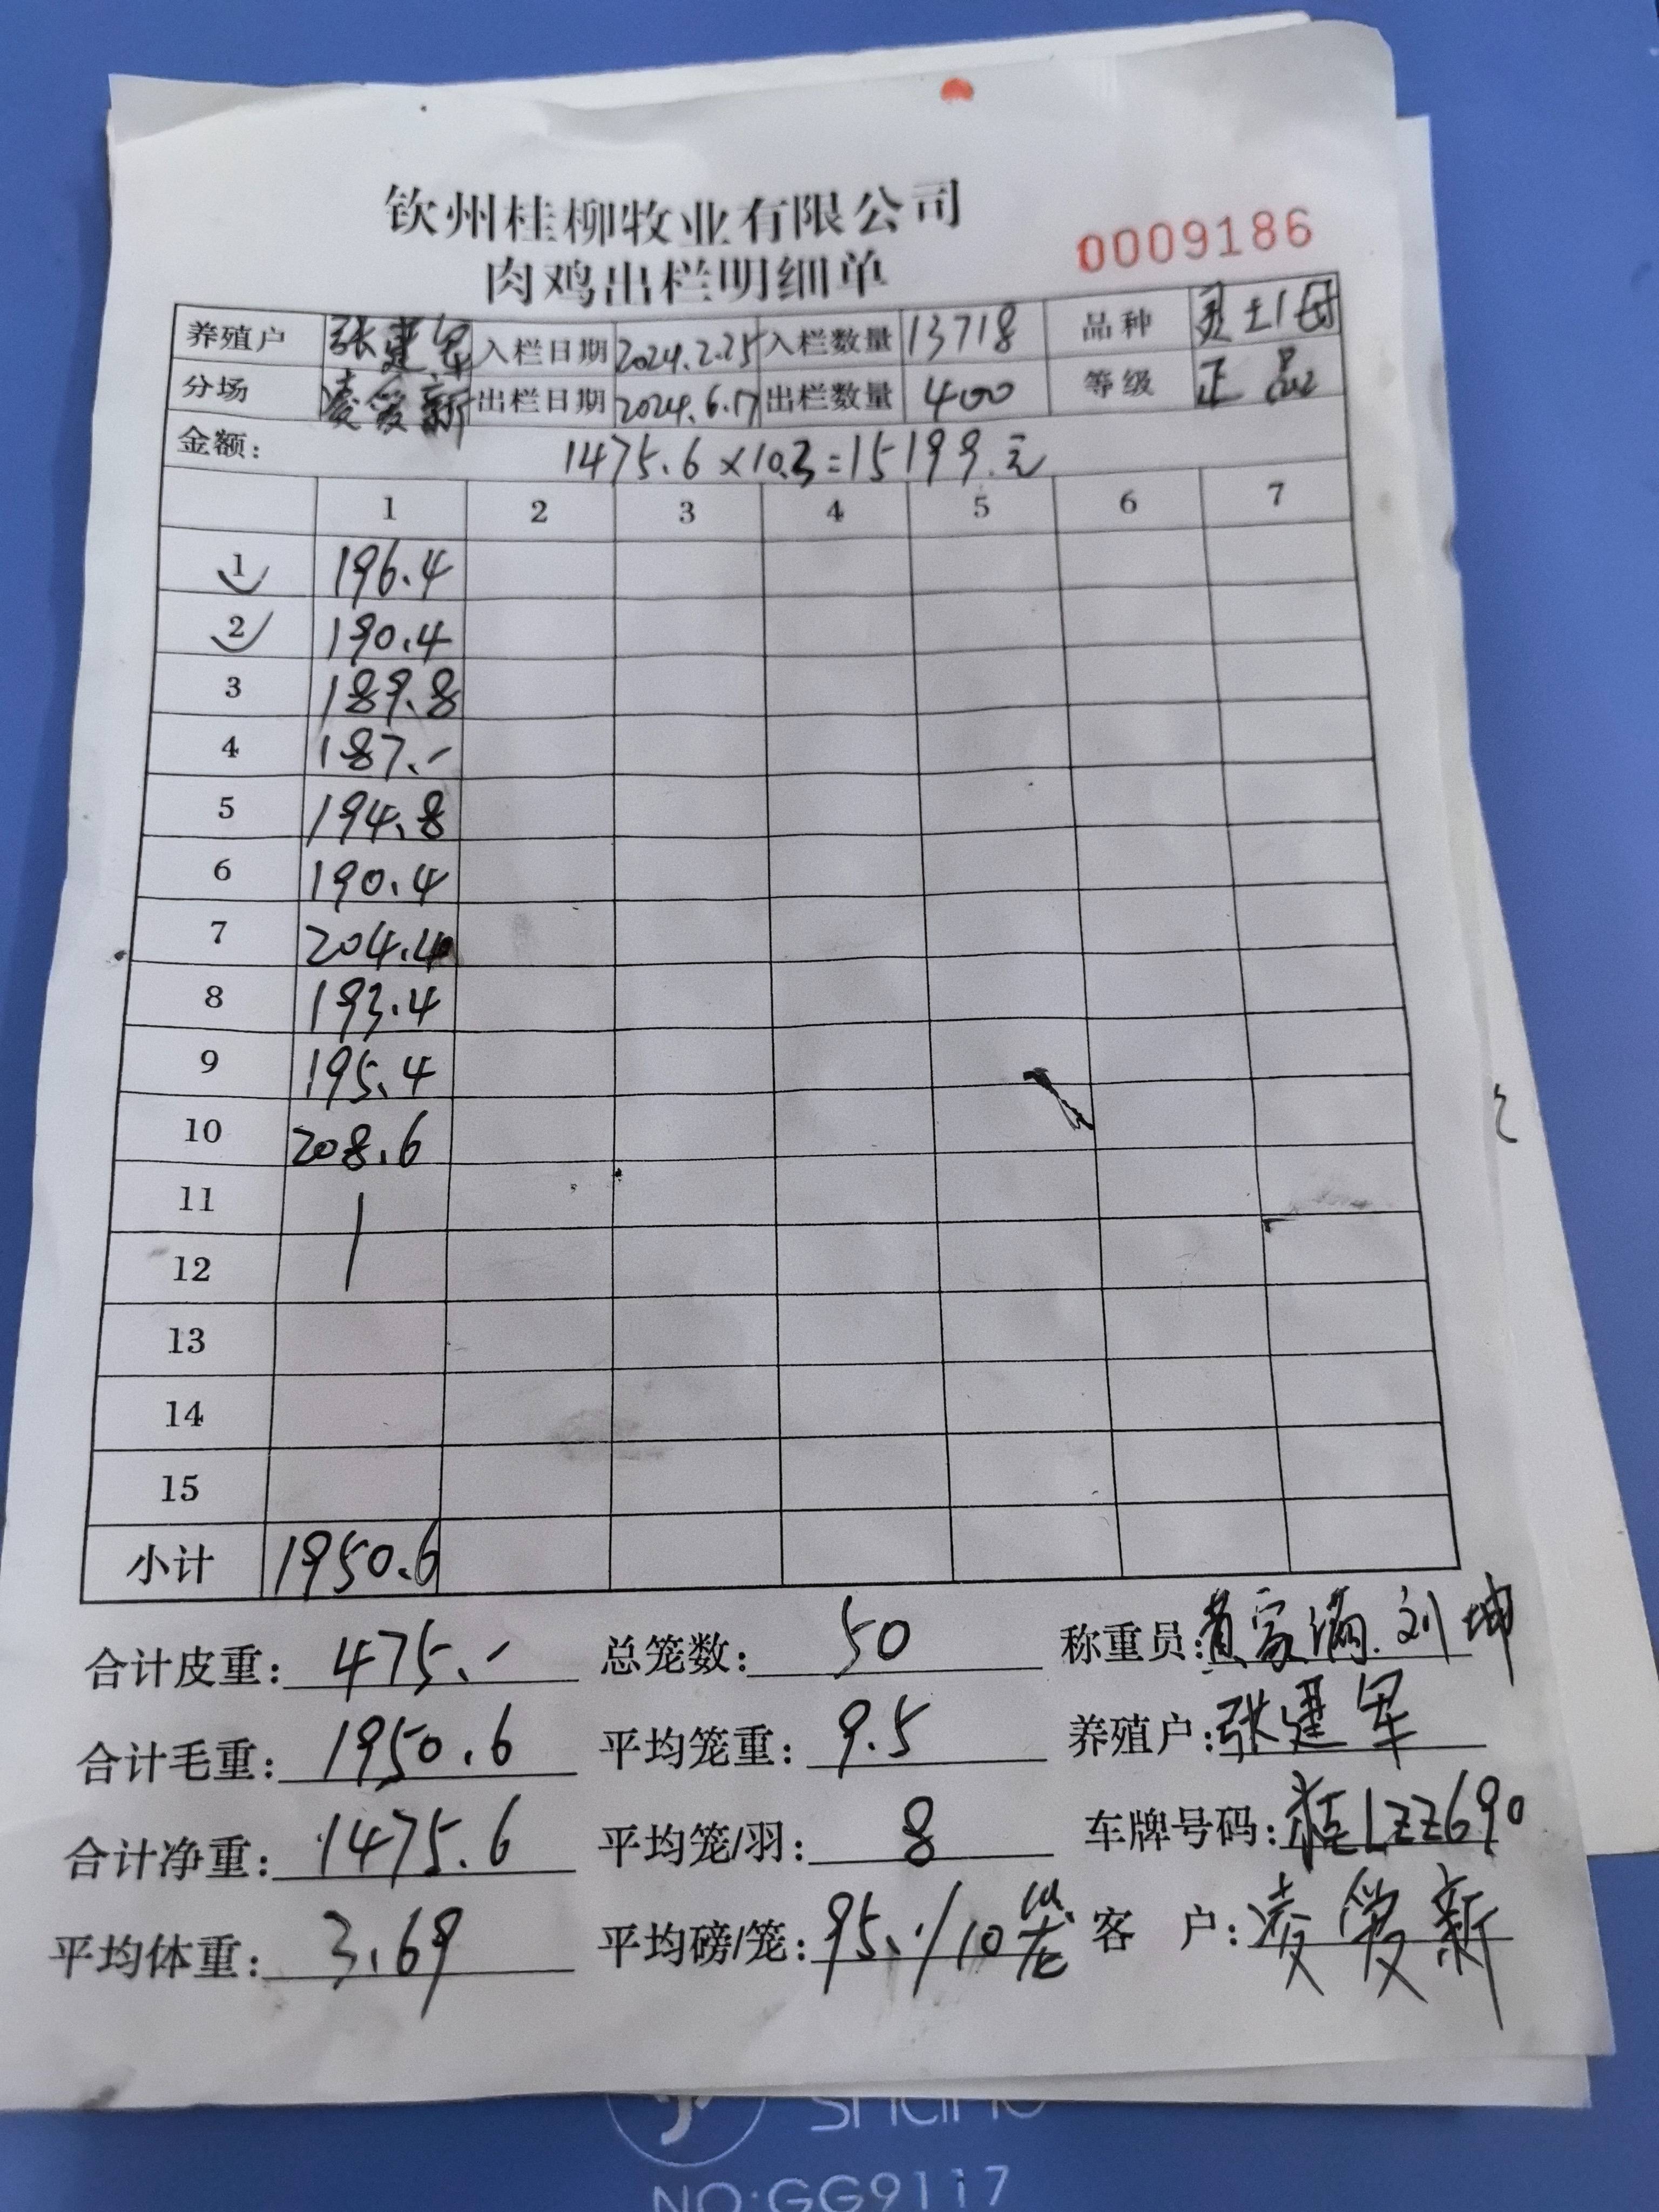 钦州桂柳牧业有限公司
肉鸡出栏明细单
0009186
养殖户 张建军 入栏日期 2024.2.25 入栏数量 13718 品种 灵土1母
分场 凌爱新 出栏日期 2024.6.17 出栏数量 400 等级 正品
金额: 1475.6×10.3=15199.元
1 2 3 4 5 6 7
1 196.4
2 190.4
3 189.8
4 187.-
5 194.8
6 190.4
7 204.4
8 193.4
9 195.4
10 208.6
11
12
13
14
15
小计 1950.6
合计皮重: 475.- 总笼数: 50 称重员: 黄家满.刘坤
合计毛重: 1950.6 平均笼重: 9.5 养殖户: 张建军
合计净重: 1475.6 平均笼/羽: 8 车牌号码: 桂LZZ690
平均体重: 3.69 平均磅/笼: 95.-/10笼 客 户: 凌爱新
NO:GG9117